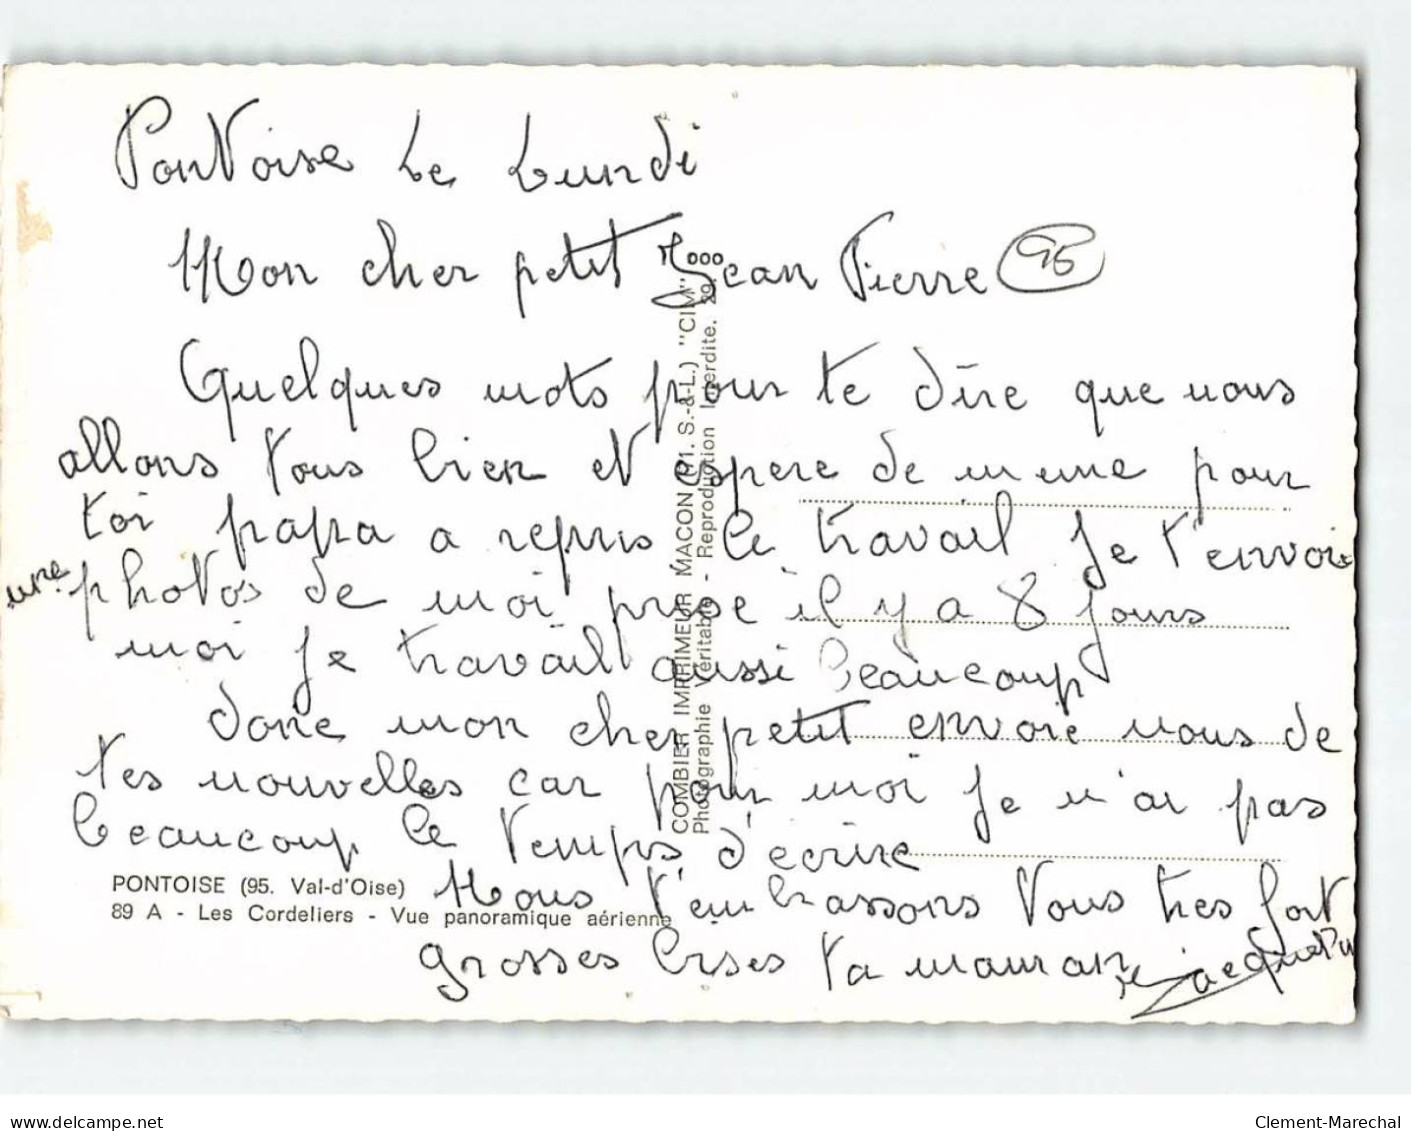 Pontoise Le Lundi
Mon cher petit Jean Pierre 95
Quelques mots pour te dire que nous
allons tous bien et espere de meme pour
toi papa a repris le travail je t'envoie
une photos de moi prise il y a 8 jours
moi je travail aussi beaucoup
donc mon cher petit envoie nous de
tes nouvelles car pour moi je n'ai pas
beaucoup le temps d'ecrire
Nous t'embrassons tous tres fort
grosses bises ta maman
COMBIER IMPRIMEUR MACON (71. S.-&-L.) "CIM"
Photographie Véritable - Reproduction Interdite.
PONTOISE (95. Val-d'Oise)
89 A - Les Cordeliers - Vue panoramique aérienne
delcampe.net
Clement-Marechal